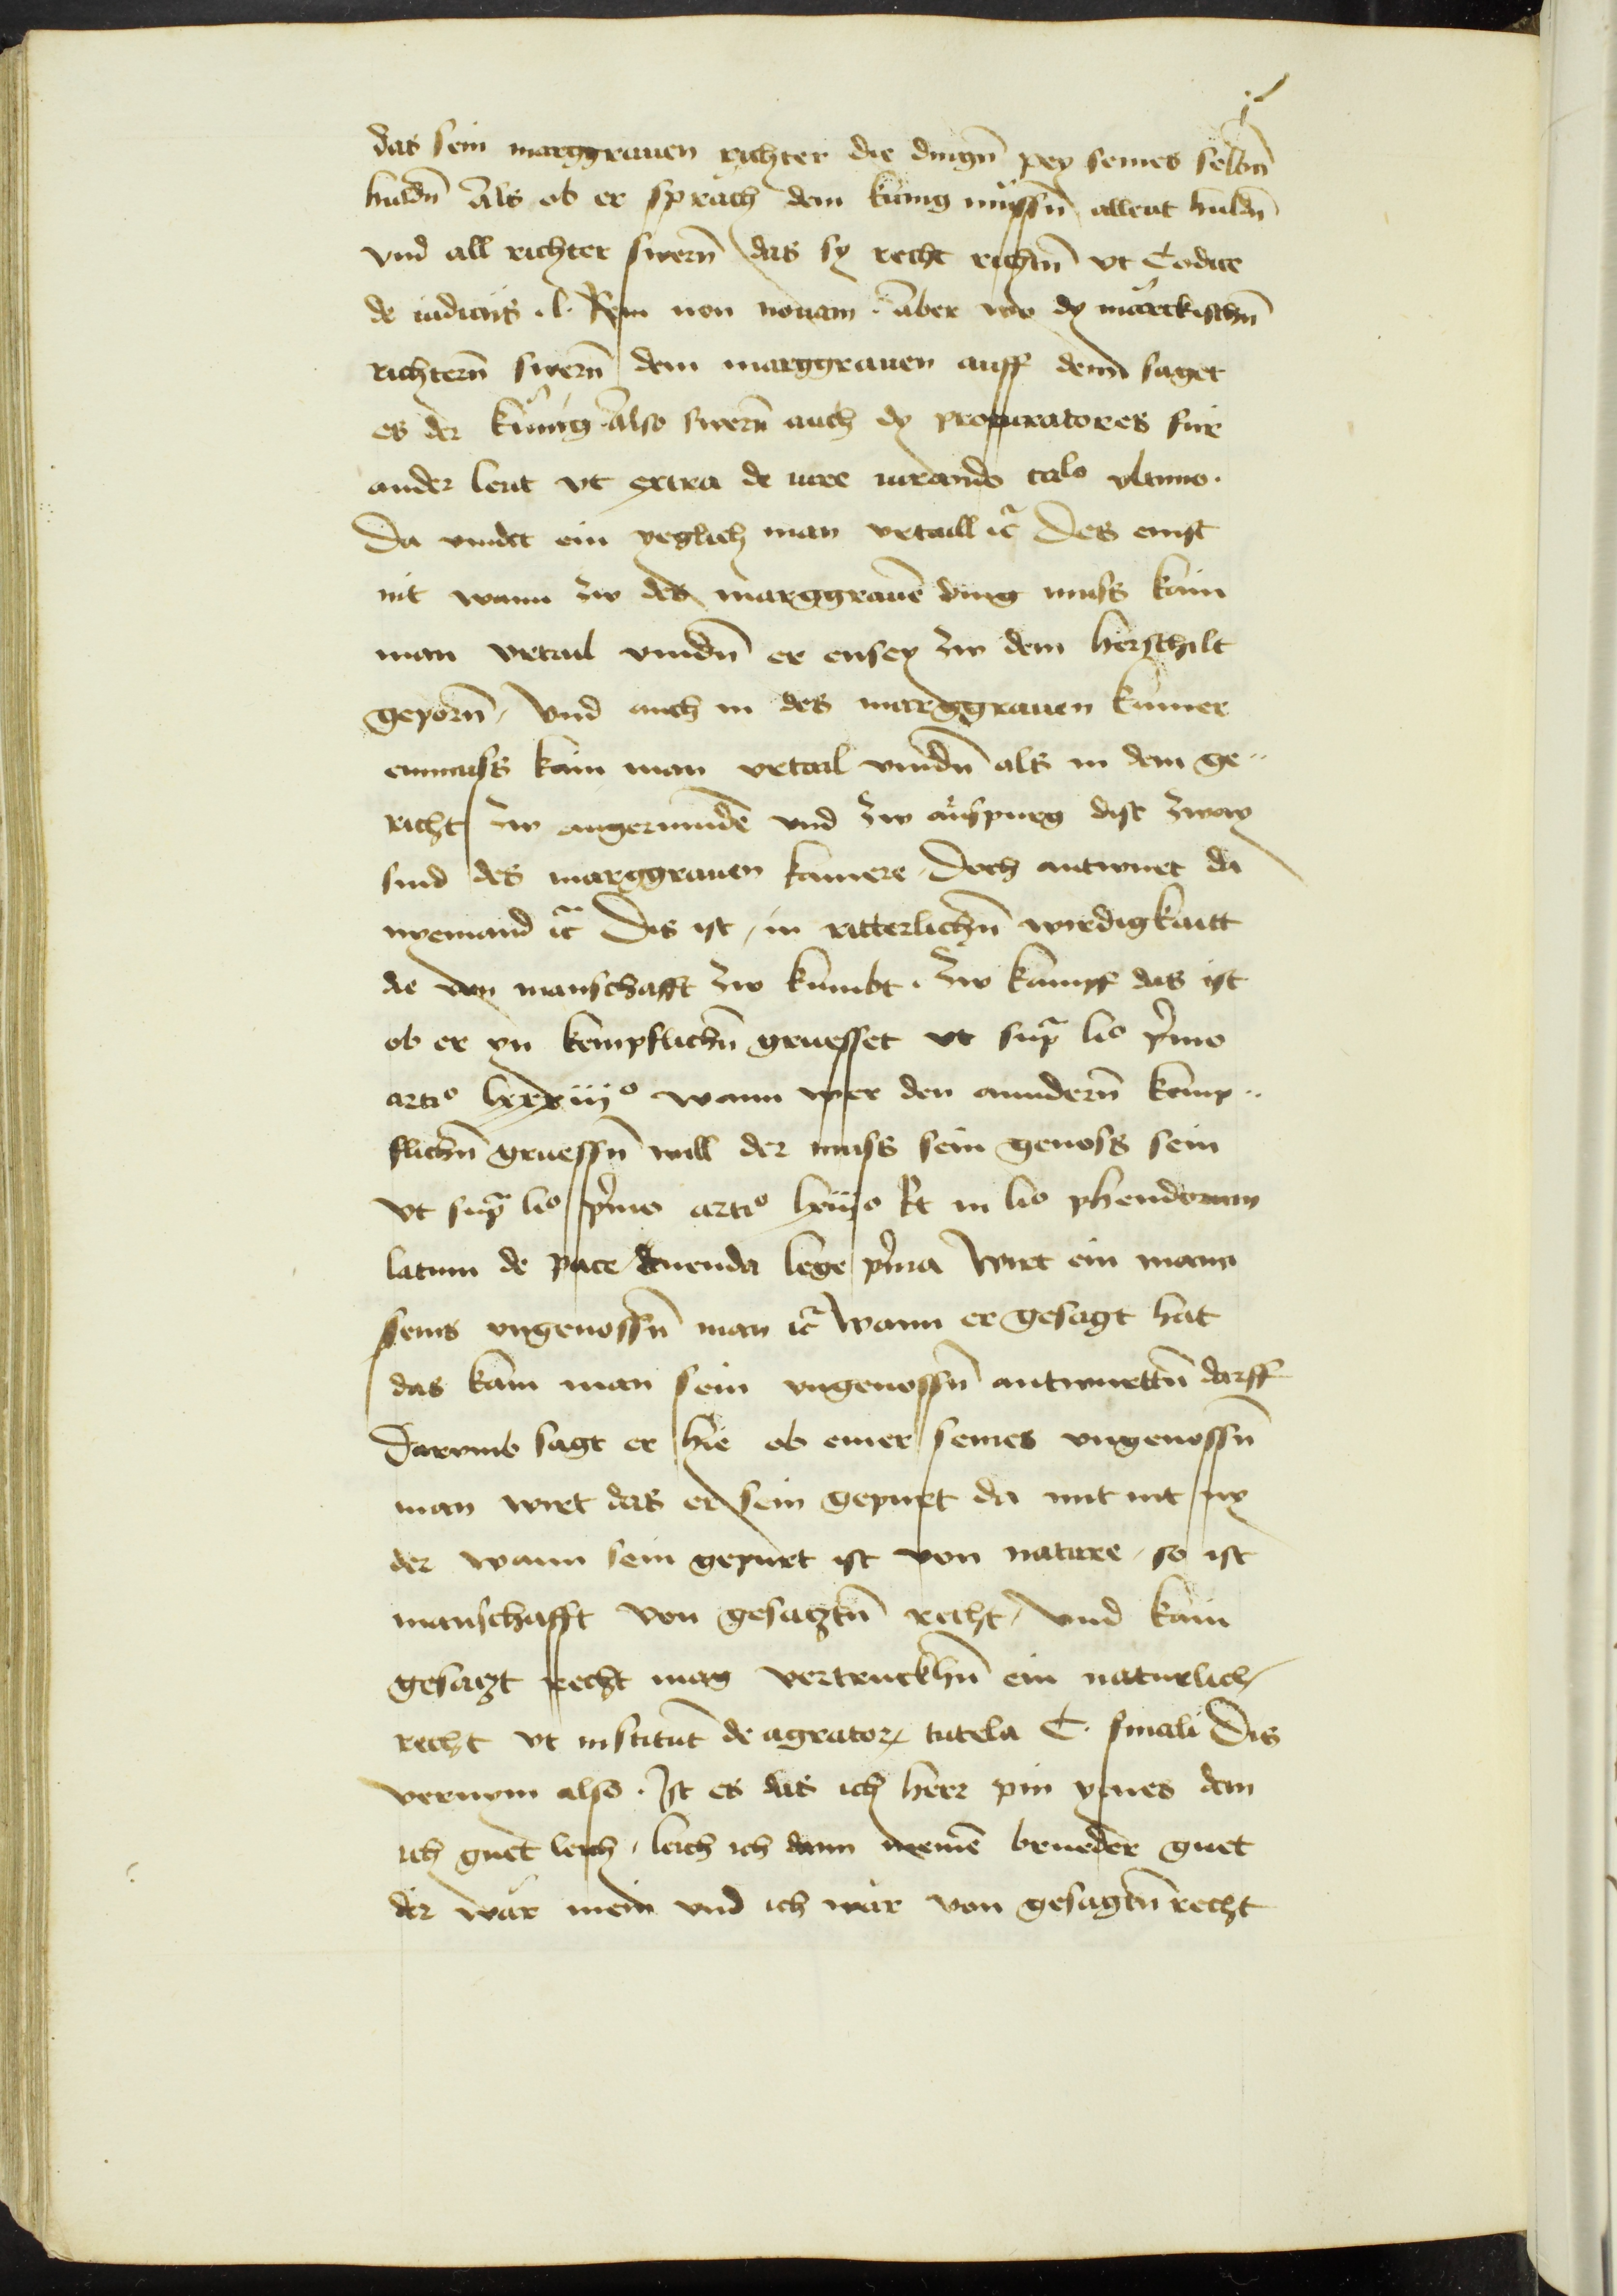 das sein marggrauen richter die dingn̄ pey seines selbn̄
huldn̄ Als ob er sprach dem kunig müssn̄ alleut huldn̄
vnd all richter swern̄ das sy recht richtn̄ vt Codice
de iudicijs .l. Rem non nouam . aber wo dy märckischn̄
richtern̄ swern̄ dem marggrauen auff denn saget
es der kunig Also swern̄ auch dy procuratores für
ander leut vt extra de iure iurando calo vltimo .
Da vindet ein yeglich man vrtaill ꝛc̃ Des enist
nit wann zw des marggrauē ding muss kain
man vrtail vindn̄ er ensey zw dem herschilt
geporn̄ / Vnd auch in des marggrauen kamer
enmuss kain man vrtail vindn̄ als in dem ge..
richt zw angermundē vnd zw auspurg dise zway
sind des marggrauen kamere / Doch antwurt da
nyemand ꝛc̃ Das ist / in ritterlichn̄ wirdigkaitt
die von manschafft zw kumbt . Zw kampf das ist
ob er yn kempflichn̄ gruesset vt sup̄ lio p̃mo
artio lxxiijo wann wer den anndern̄ kemp..
flichn̄ gruessn̄ will der muss sein genoss sein
vt sup̄ lio p̃mo artio lxiijo Et in lio phendorum
latum de pace tenenda lege p̃ma Wirt ein mann
seins vngenossn̄ man ꝛc̃ Wann er gesagt hat
das kain man sein vngenossn̄ antwurttn̄ darff
Darvmb sagt er hie ob einer seines vngenossn̄
man wirt das er sein gepurt da mit nit ny
der wann sein gepurt ist von nature / so ist
manschafft von gesatztn̄ recht / Vnd kain
gesatzt recht mag vertruckhn̄ ein naturlich
recht vt institut̄ de agnator tutela C. finali Dis
vernym also . Ist es das ich herr pin ynes dem
ich guet leich / leich ich dann meinē brueder guet
der wär mein vnd ich wär von gesagtn̄ recht